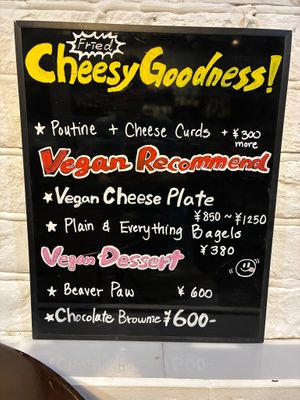 Fried
Cheesy Goodness!
★ Poutine + Cheese Curds + ¥300
more
Vegan Recommend
★ Vegan Cheese Plate
¥850 ~ ¥1250
★ Plain & Everything Bagels
¥380
Vegan Dessert
★ Beaver Paw ¥600
★ Chocolate Browne ¥600-